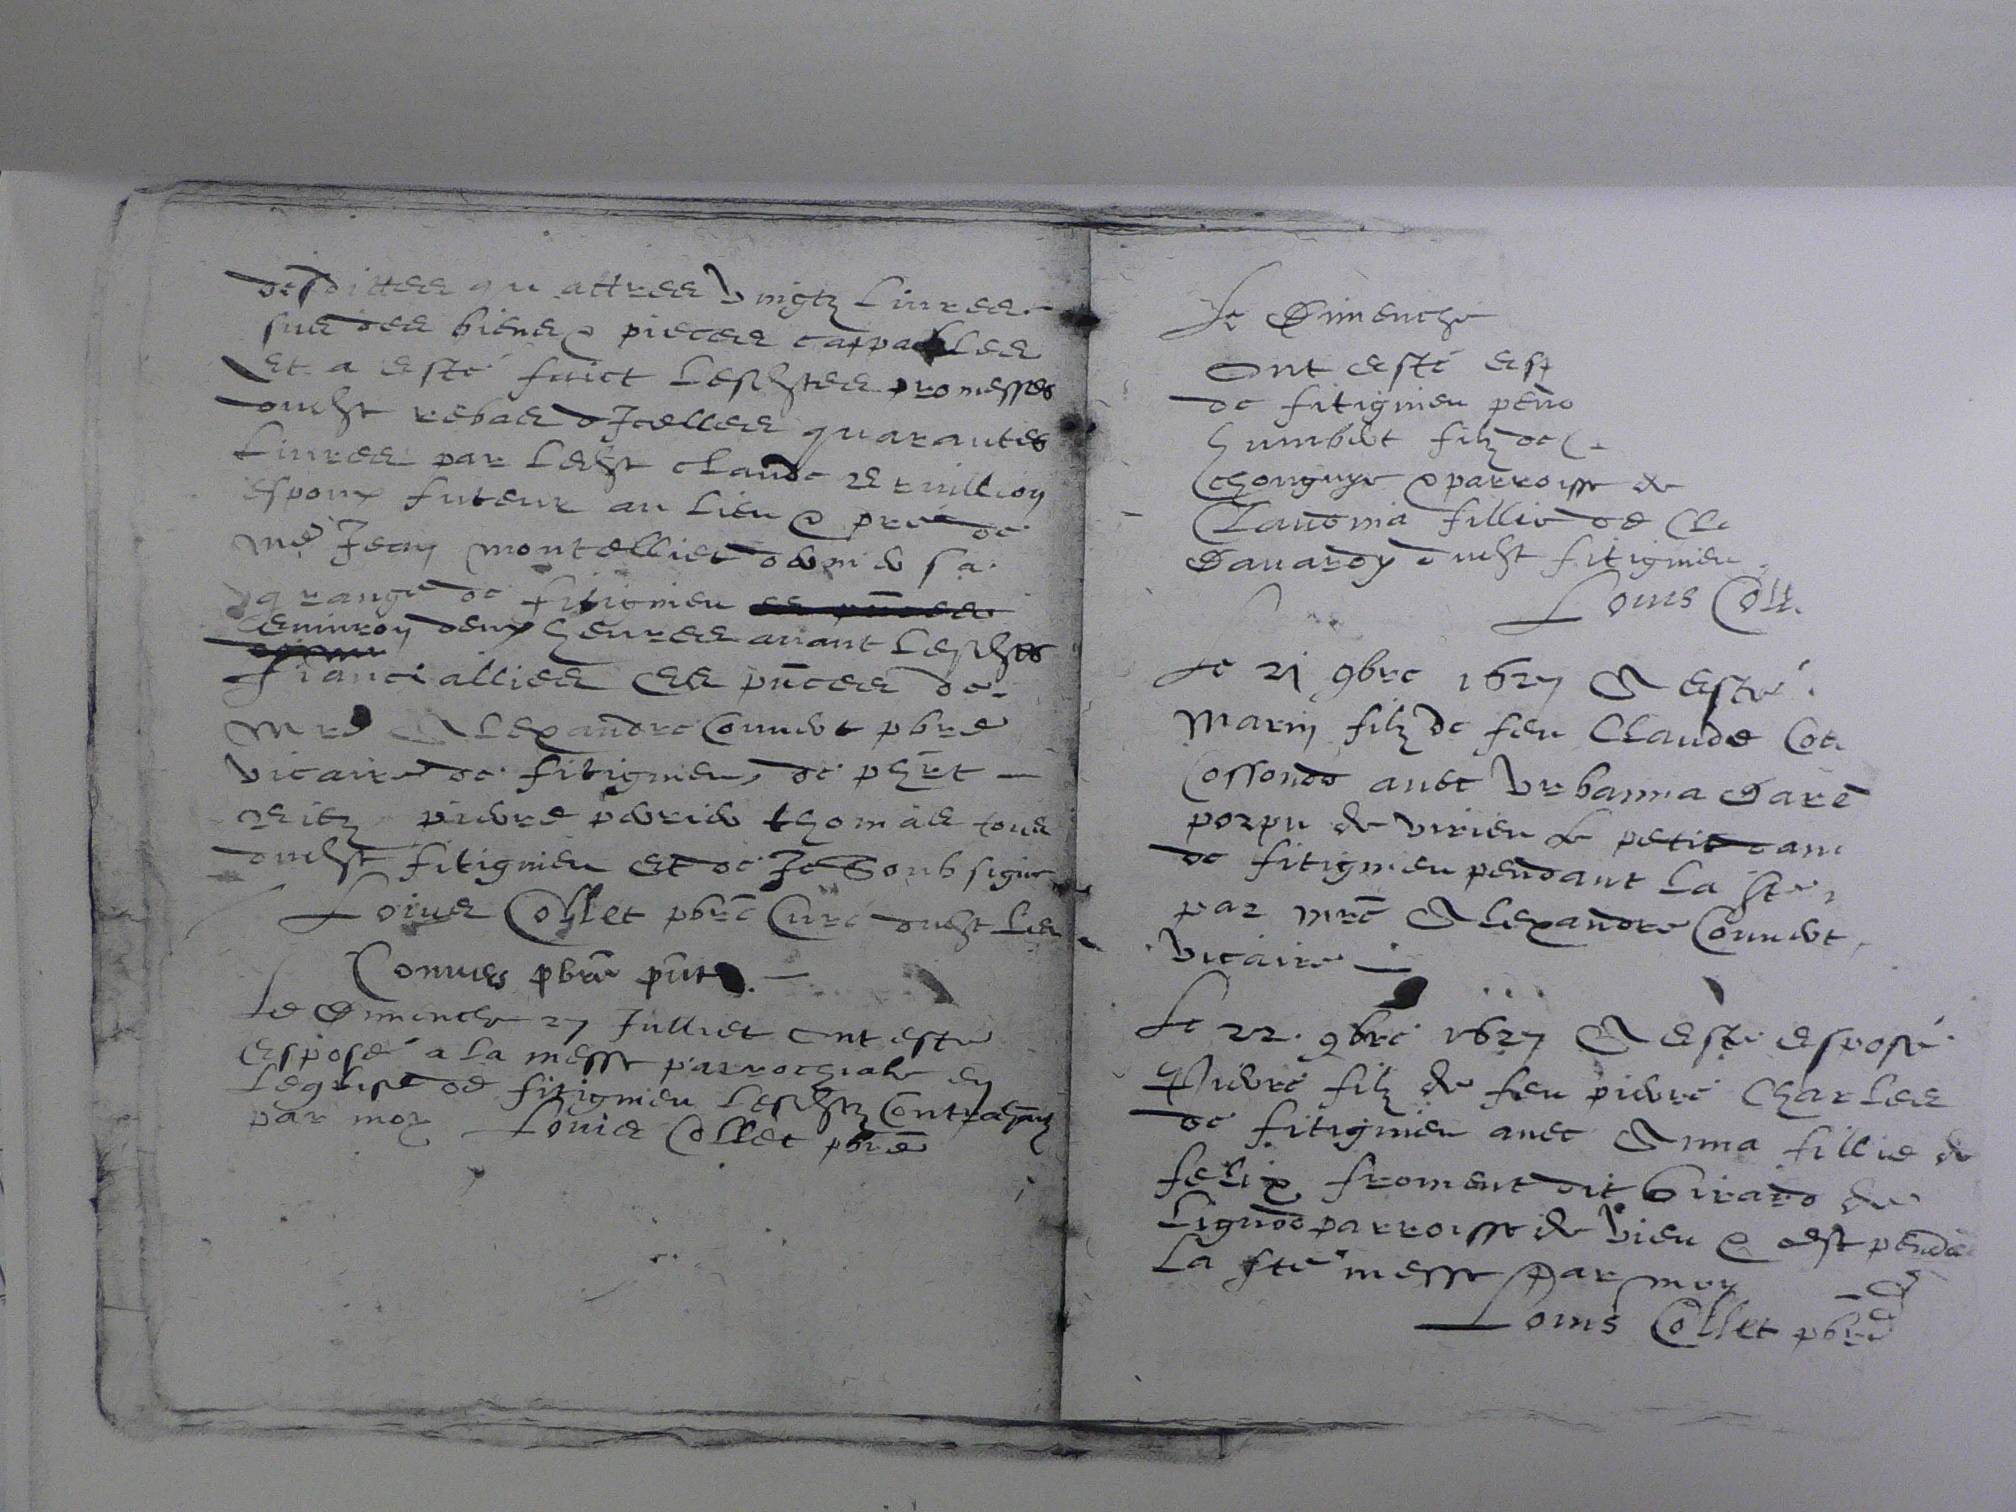 desdittes quattres vingtz livres
sus des biens & pieces cappables
Et a esté faict lesdittes promesses
dudit rebas d'Icelles quarantes
Livres par ledit Claude
espoux futeur au lieu & pres de
me Jean montelliet dernier sa
grange de fitignieu
environ deux heures avant lesdits
fiancialliés Es pnces de
mre Alexandre Convert pbre
vicaire de fitignieu, de
pierre perrier thomas tous
dudit fitignieu Et de Je Soubsigne
Loius Collet pbre Cure dudit lieu
Convers pbre pnt
Le Dimenche 27 Julliet ont esté
Esposé a la messe parrochiale en
Leglise de fitignieu lesdits Contrahans
par moy Louis Collet pbre
Le Dimenche
Ont esté esp
de fitignieu pen
humbert filz de
Chongnye & parroisse de
Claudina fillie de Cla
Davardy dudit fitignieu
Louis Coll
Le 21 9bre 1627 A esté
Marin filz de feu Claude Cot
Cossondo avec Urbanna Dare
porpu de virieu le petit dam
de fitignieu pendant la ste
par mre Alexandre Convert
vicaire
Le 22. 9bre 1627 A esté esposé
Pierre filz de feu pierre Charles
de fitignieu avec Anna fillie de
felix froment dit birard de
Lignod parroisse de vieu & cest penda
la ste messe Par moy
Louis Collet pbre